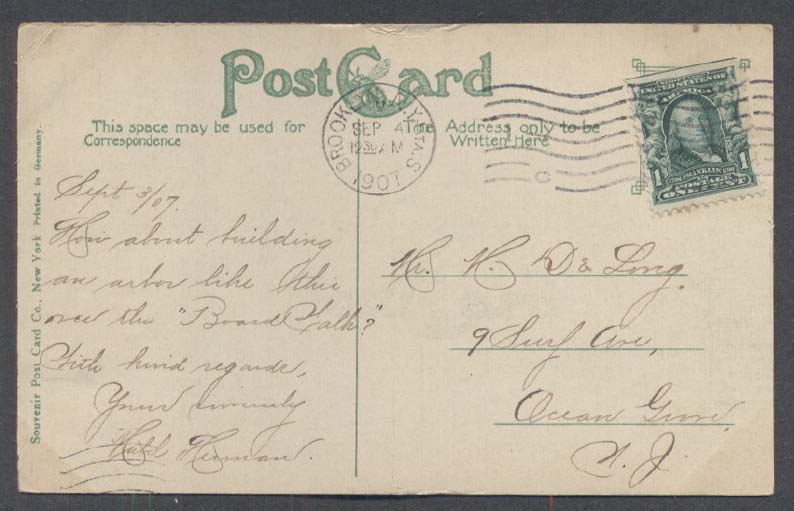 Post Card
This space may be used for
Correspondence
The Address only to be
Written Here
BROOKLYN, N.Y. STA. S
SEP 4
12 30 AM
1907
UNITED STATES OF
AMERICA
1 FRANKLIN 1
POSTAGE
ONE CENT
Souvenir Post Card Co., New York Printed in Germany.
Sept 3/07.
How about building
an arbor like this
over the "Board Walk?"
With kind regards,
Yours sincerely
Herman.
Mr. H. De Long.
9 Surf Ave,
Ocean Grove,
N. J.